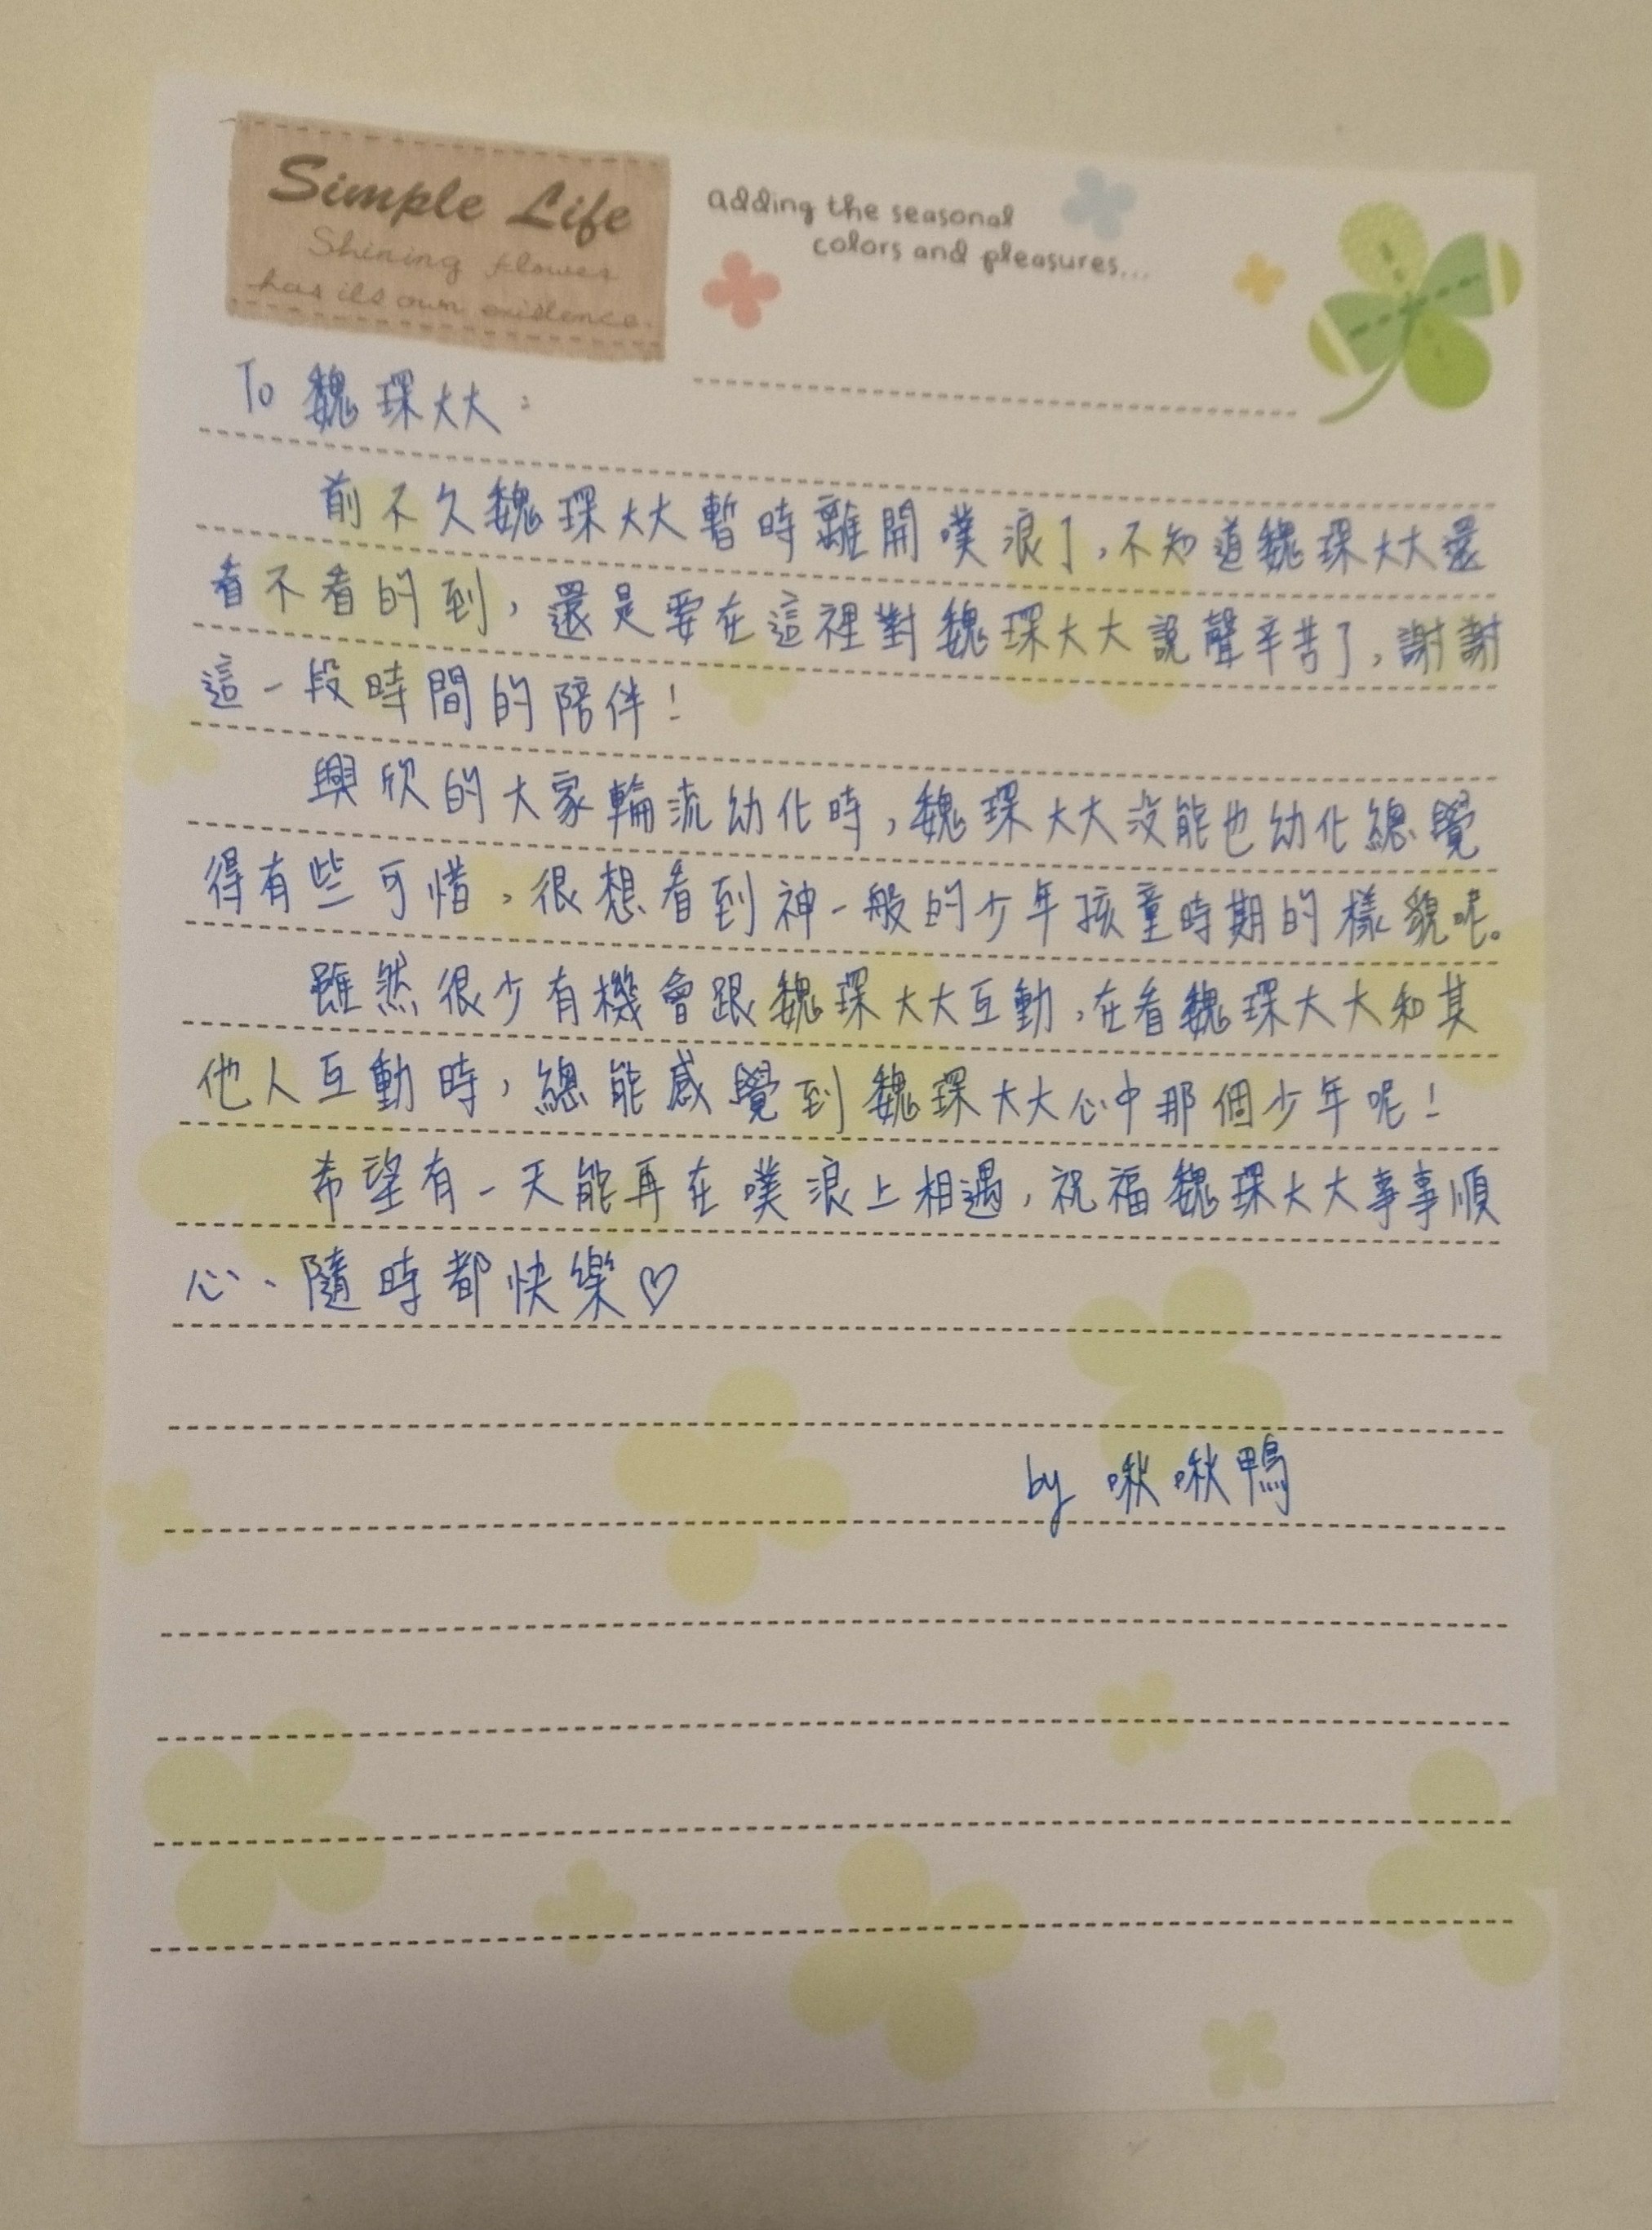 Simple Life
Shining flower
has its own existence.
adding the seasonal
colors and pleasures...
To 魏琛大大：
前不久魏琛大大暫時離開噗浪了，不知道魏琛大大還
看不看的到，還是要在這裡對魏琛大大說聲辛苦了，謝謝
這一段時間的陪伴！
興欣的大家輪流幼化時，魏琛大大沒能也幼化總覺
得有些可惜，很想看到神一般的少年孩童時期的樣貌呢。
雖然很少有機會跟魏琛大大互動，在看魏琛大大和其
他人互動時，總能感覺到魏琛大大心中那個少年呢！
希望有一天能再在噗浪上相遇，祝福魏琛大大事事順
心、隨時都快樂♡
by 啾啾鴨